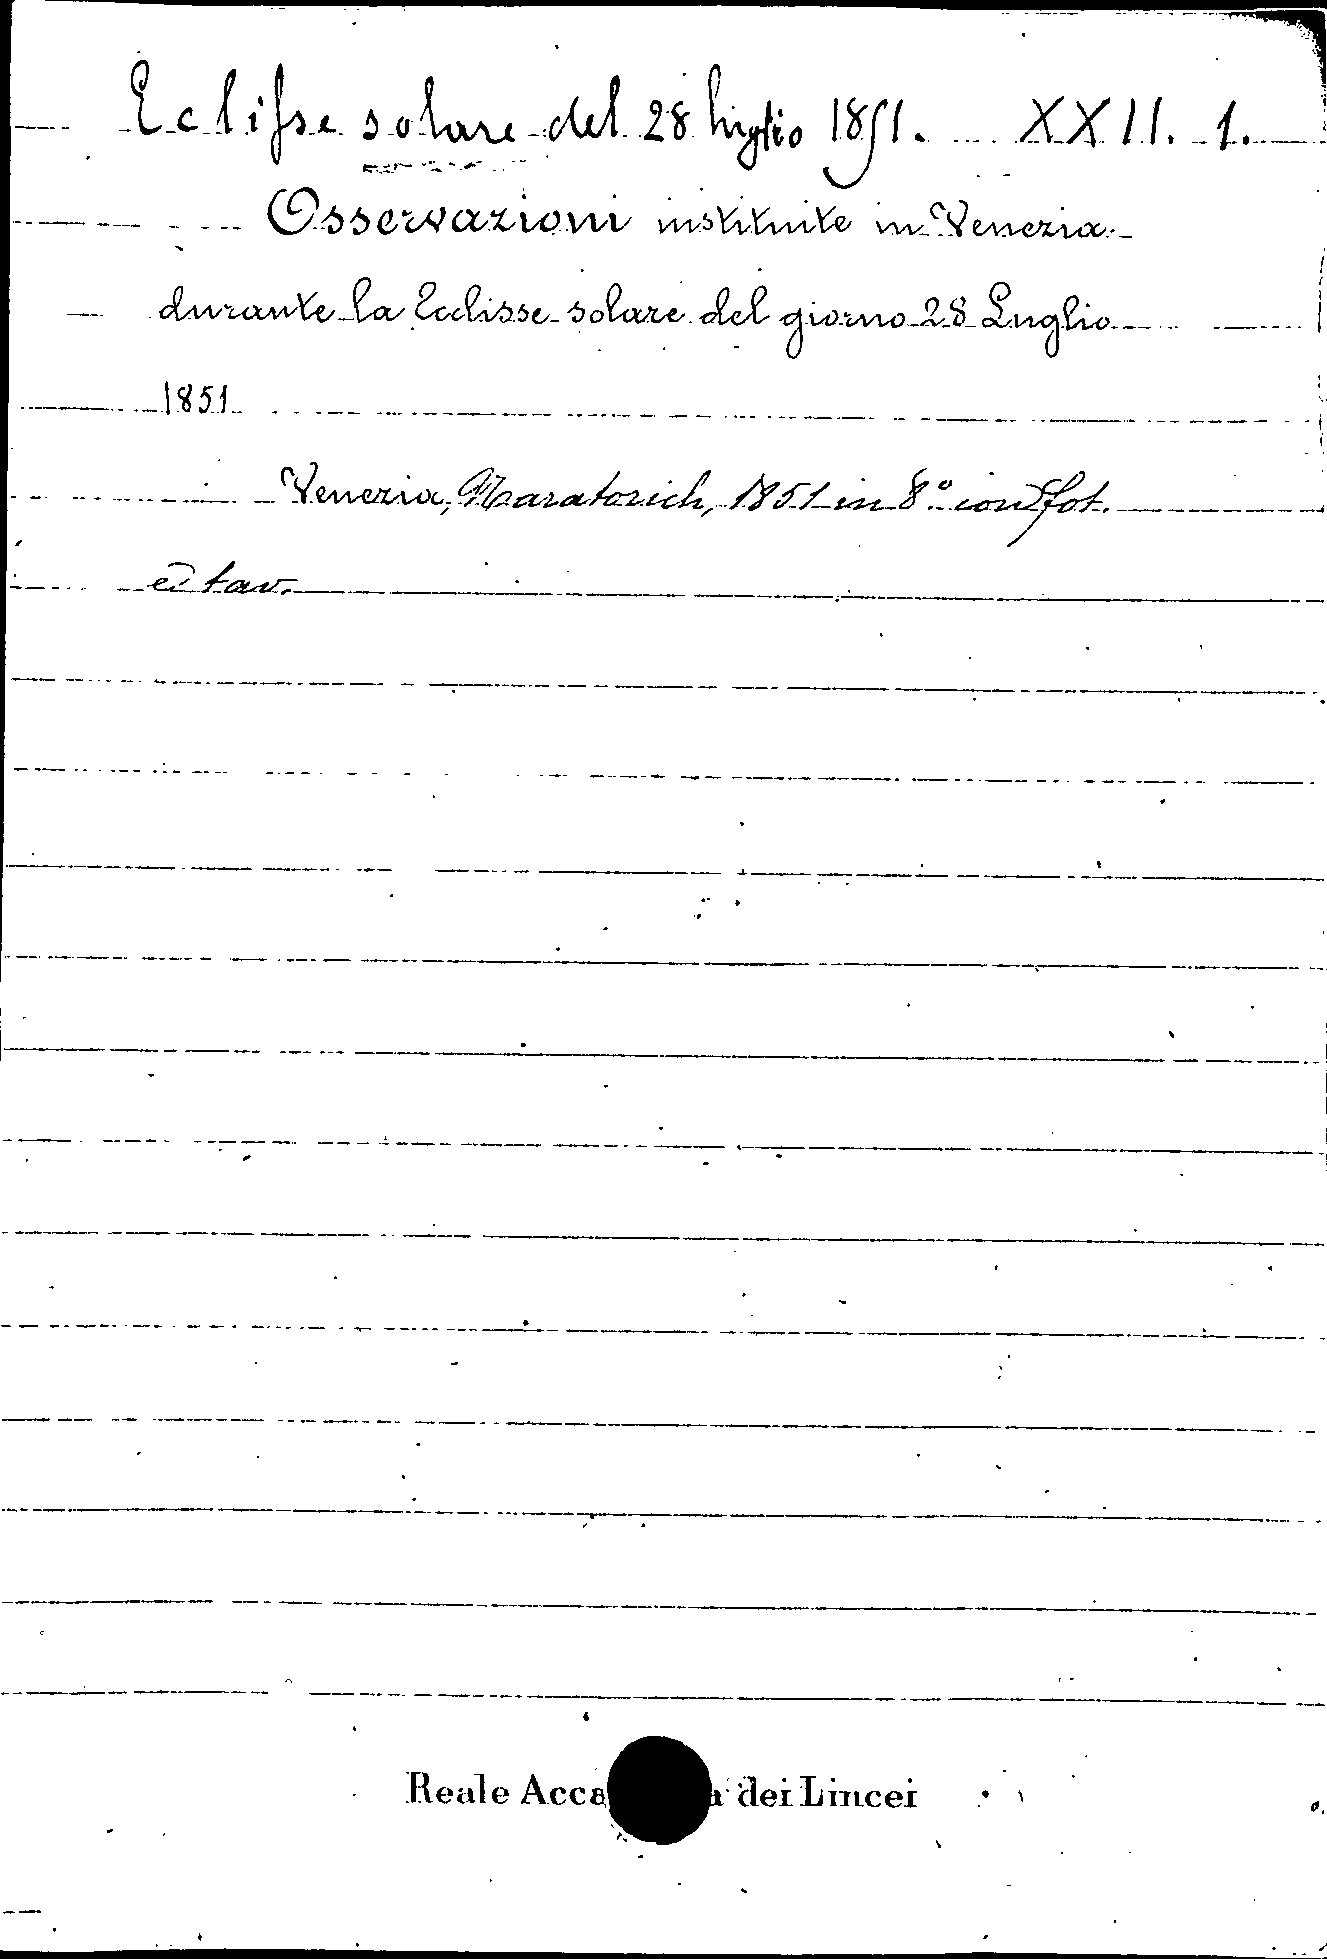 Eclisse solare del 28 luglio 1851. XXII. 1.
Osservazioni instituite in Venezia
durante la Ecclisse solare del giorno 28 Luglio
1851
Venezia, Naratovich, 1851 in 8.° con fot.
e tav.
Reale Acca a dei Lincei